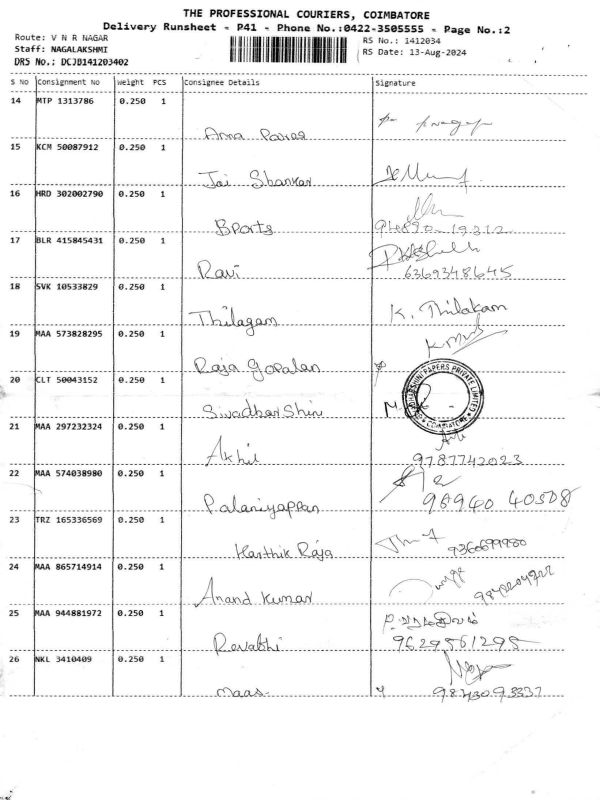 THE PROFESSIONAL COURIERS, COIMBATORE
Delivery Runsheet - P41 - Phone No.:0422-3505555 - Page No.:2
Route: V N R NAGAR
Staff: NAGALAKSHMI
DRS No.: DCJB141203402
RS No.: 1412034
RS Date: 13-Aug-2024
S No Consignment No Weight PCS Consignee Details Signature
14 MTP 1313786 0.250 1
Anna
15 KCM 50087912 0.250 1
Jai Shankar
16 HRD 302002790 0.250 1
Bports 94890-19312
17 BLR 415845431 0.250 1
Ravi 6369348645
18 SVK 10533829 0.250 1
Thilagam K. Thilakam
19 MAA 573828295 0.250 1
Raja Gopalan
20 CLT 50043152 0.250 1
Sivadharshini
PAPERS PRIVATE LIMITED
COIMBATORE
21 MAA 297232324 0.250 1
Akhil 9787742023
22 MAA 574038980 0.250 1
Palaniyappan 96940 40508
23 TRZ 165336569 0.250 1
Karthik Raja 9360699980
24 MAA 865714914 0.250 1
Anand Kumar
25 MAA 944881972 0.250 1
Revathi 9629561295
26 NKL 3410409 0.250 1
Maas